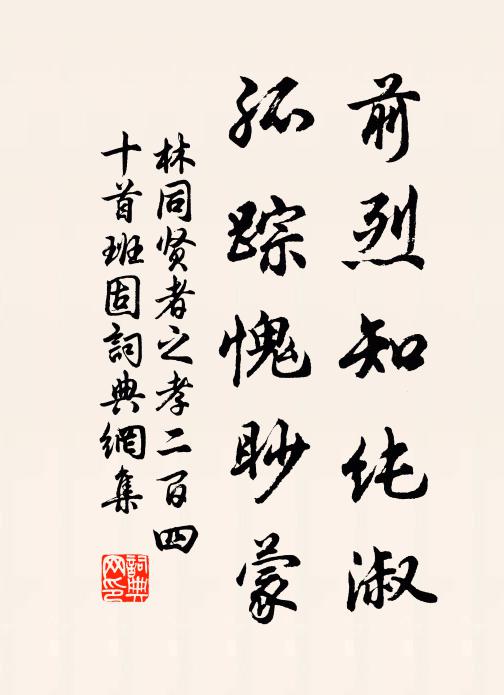 前烈知纯淑
孤踪愧眇蒙
林同贤者之孝二百四
十首班固詞典網集
詞典
网印